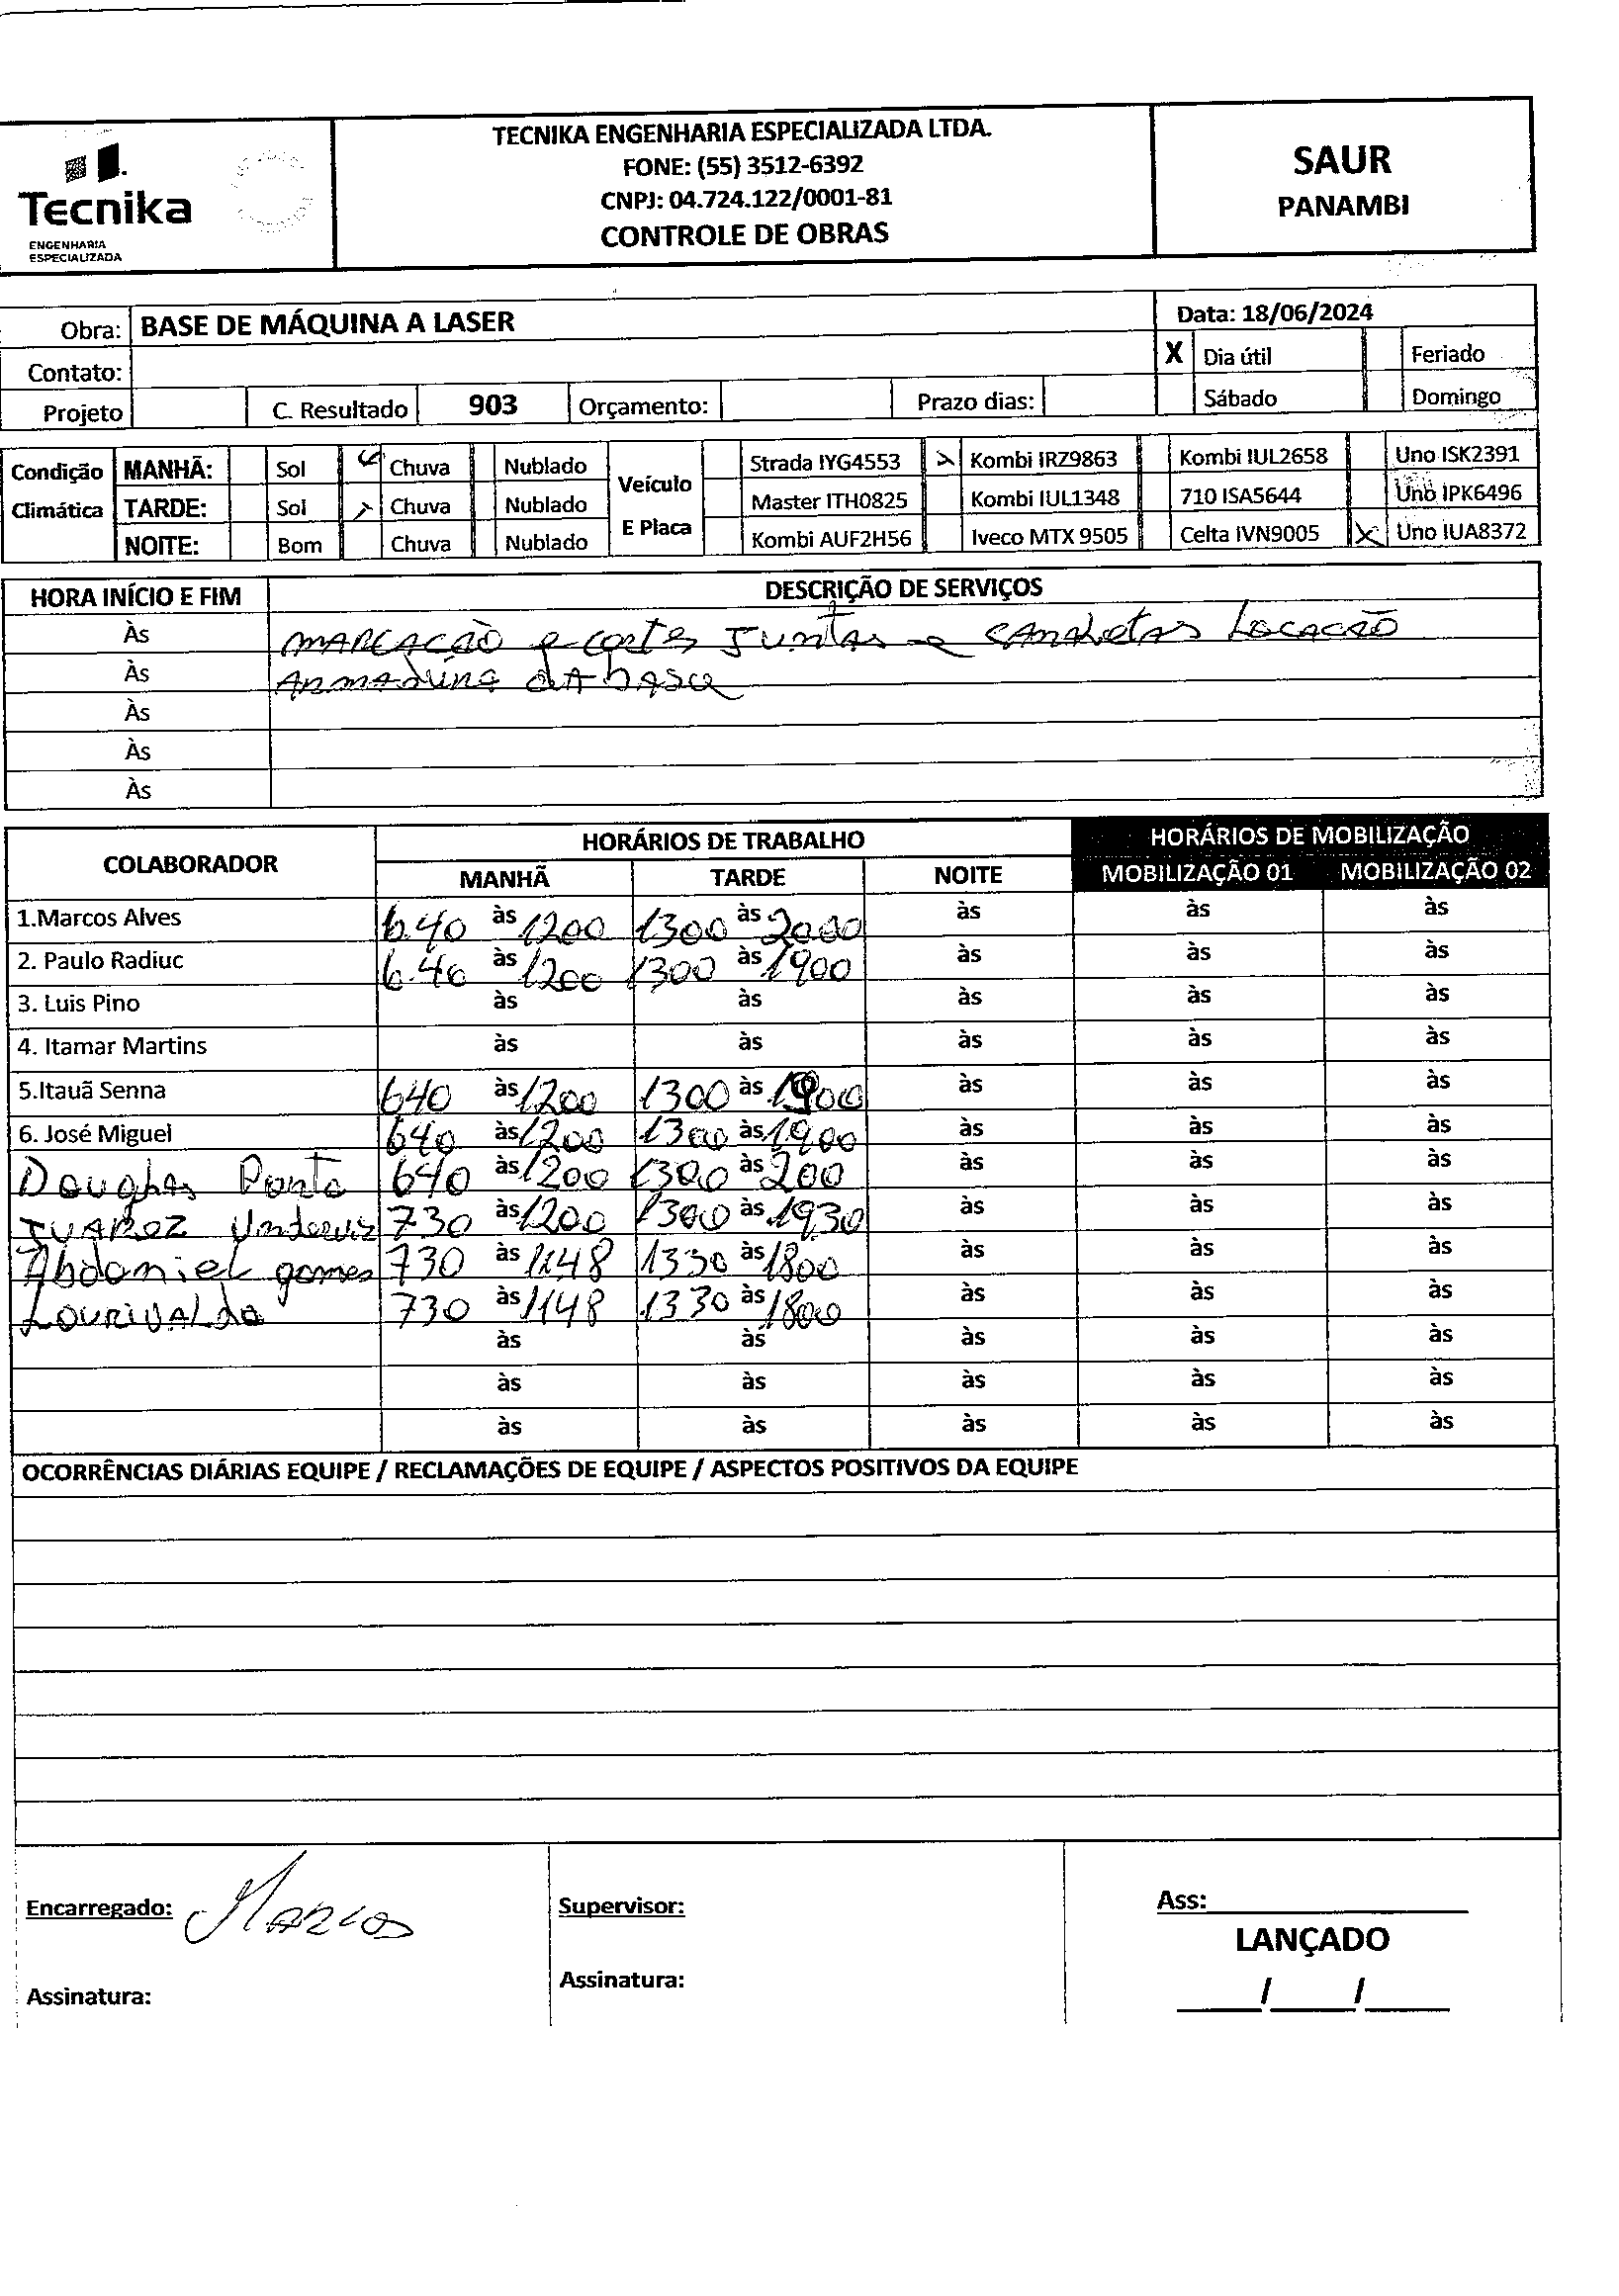 TECNIKA ENGENHARIA ESPECIALIZADA LTDA.
FONE: (55) 3512-6392
CNPJ: 04.724.122/0001-81
CONTROLE DE OBRAS
Tecnika
ENGENHARIA
ESPECIALIZADA
SAUR
PANAMBI
Obra: BASE DE MÁQUINA A LASER Data: 18/06/2024
Contato: X Dia útil Feriado
Projeto C. Resultado 903 Orçamento: Prazo dias: Sábado Domingo
Condição Climática Veículo E Placa
MANHÃ: Sol Chuva Nublado Strada IYG4553 Kombi IRZ9863 Kombi IUL2658 Uno ISK2391
TARDE: Sol Chuva Nublado Master ITH0825 Kombi IUL1348 710 ISA5644 Uno IPK6496
NOITE: Bom Chuva Nublado Kombi AUF2H56 Iveco MTX 9505 Celta IVN9005 X Uno IUA8372
HORA INÍCIO E FIM DESCRIÇÃO DE SERVIÇOS
Às marcacão e cortes Juntas e canaletas Locacão
Às Armadura da base
Às
Às
Às
COLABORADOR HORÁRIOS DE TRABALHO HORÁRIOS DE MOBILIZAÇÃO
MANHÃ TARDE NOITE MOBILIZAÇÃO 01 MOBILIZAÇÃO 02
1.Marcos Alves 6.40 às 1200 1300 às 2000 às às às
2. Paulo Radiuc 6.40 às 1200 1300 às 1900 às às às
3. Luis Pino às às às às às
4. Itamar Martins às às às às às
5.Itauã Senna 640 às 1200 1300 às 1900 às às às
6. José Miguel 640 às 1200 1300 às 1900 às às às
Douglas 640 às 1200 1300 às 200 às às às
Juarez 730 às 1200 1300 às 1930 às às às
Abdoniel gomes 730 às 1148 1330 às 1800 às às às
Lourivaldo 730 às 1148 1330 às 1800 às às às
às às às às às
às às às às às
às às às às às
OCORRÊNCIAS DIÁRIAS EQUIPE / RECLAMAÇÕES DE EQUIPE / ASPECTOS POSITIVOS DA EQUIPE
Encarregado: Marcos Supervisor: Ass:
LANÇADO
Assinatura: Assinatura: / /